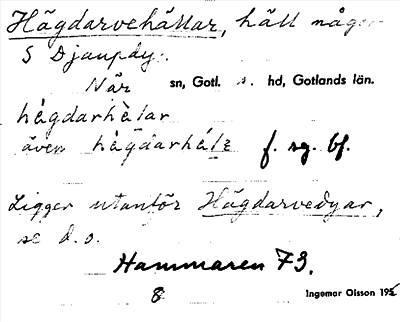 Hägdarvehällar, häll någon
S Djaupdy.
När sn, Gotl. s. hd, Gotlands län.
hägdarhällar
även f. sg. bf.
Ligger utanför Hägdarvedyar,
se d.o.
Hammaren 73.
8 Ingemar Olsson 195